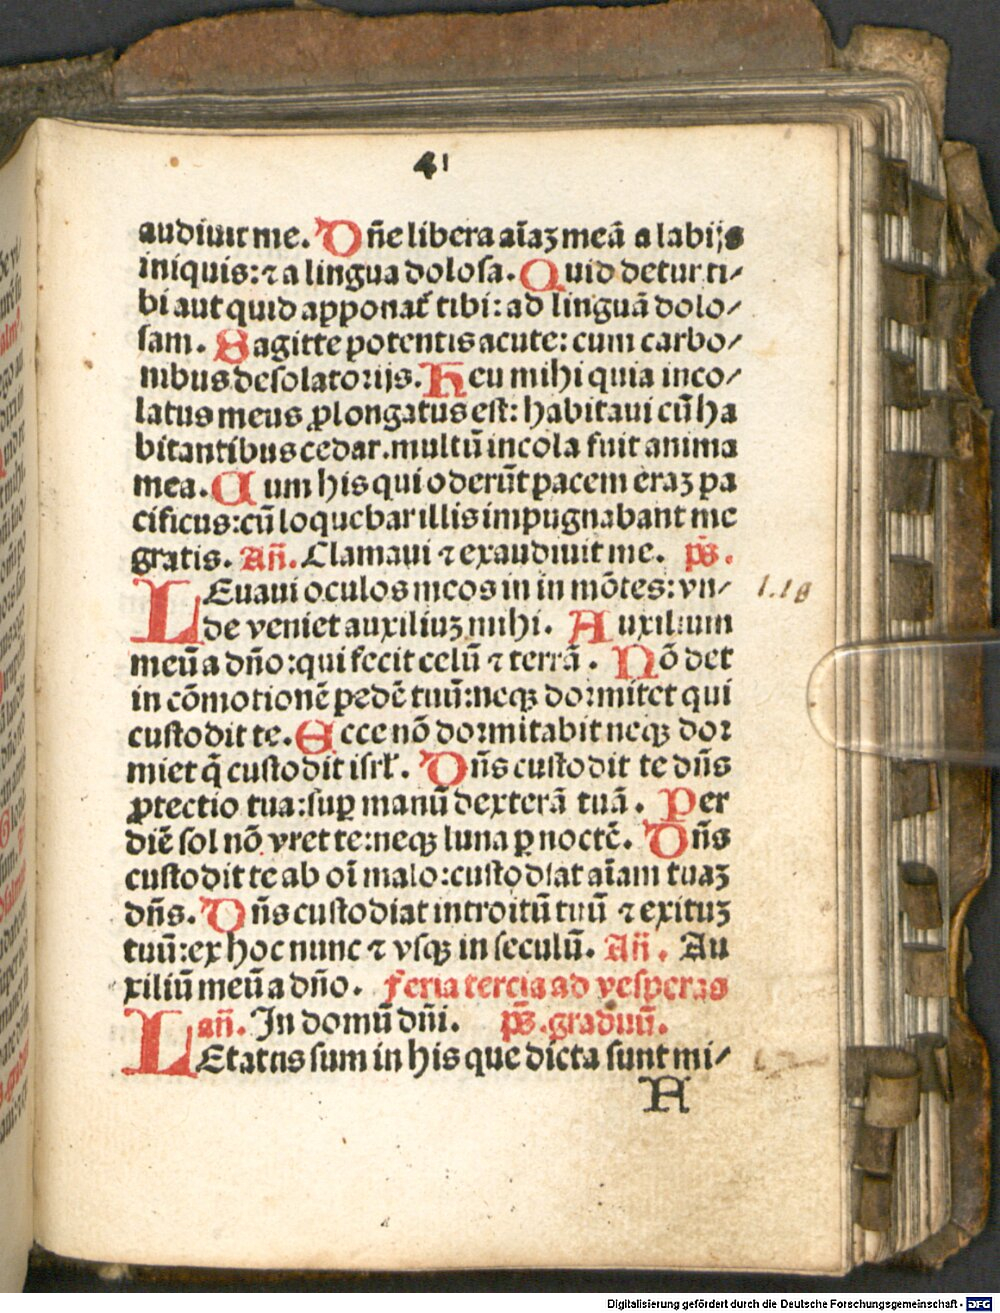 41
audiuit me. Dñe libera aīaꝫ meā a labijs
iniquis: ⁊ a lingua dolosa. Quid detur ti/
bi aut quid apponat̄ tibi: ad linguā dolo/
sam. Sagitte potentis acute: cum carbo/
nibus desolatorijs. Heu mihi quia inco/
latus meus ꝓlongatus est: habitaui cū ha
bitantibus cedar. multū incola fuit anima
mea. Cum his qui oderūt pacem eraꝫ pa
cificus: cū loquebar illis impugnabant me
gratis. Añ. Clamaui ⁊ exaudiuit me. p̄s.
LEuaui oculos meos in in mōtes: vn/
1.18
de veniet auxiliuꝫ mihi. Auxilium
meū a dño: qui fecit celū ⁊ terrā. Nō det
in cōmotionē pedē tuū: neqꝫ dormitet qui
custodit te. Ecce nō dormitabit neqꝫ dor
miet q̄ custodit isrl̓. Dñs custodit te dñs
ꝓtectio tua: suꝑ manū dexterā tuā. Per
diē sol nō vret te: neqꝫ luna ꝑ noctē. Dñs
custodit te ab oī malo: custodiat aīam tuaꝫ
dñs. Dñs custodiat introitū tuū ⁊ exituꝫ
tuū: ex hoc nunc ⁊ vsqꝫ in seculū. Añ. Au
xiliū meū a dño. feria tercia ad vesperas
añ. In domū dñi. p̄s. graduū.
LEtatus sum in his que dicta sunt mi/
A
Digitalisierung gefördert durch die Deutsche Forschungsgemeinschaft - DFG